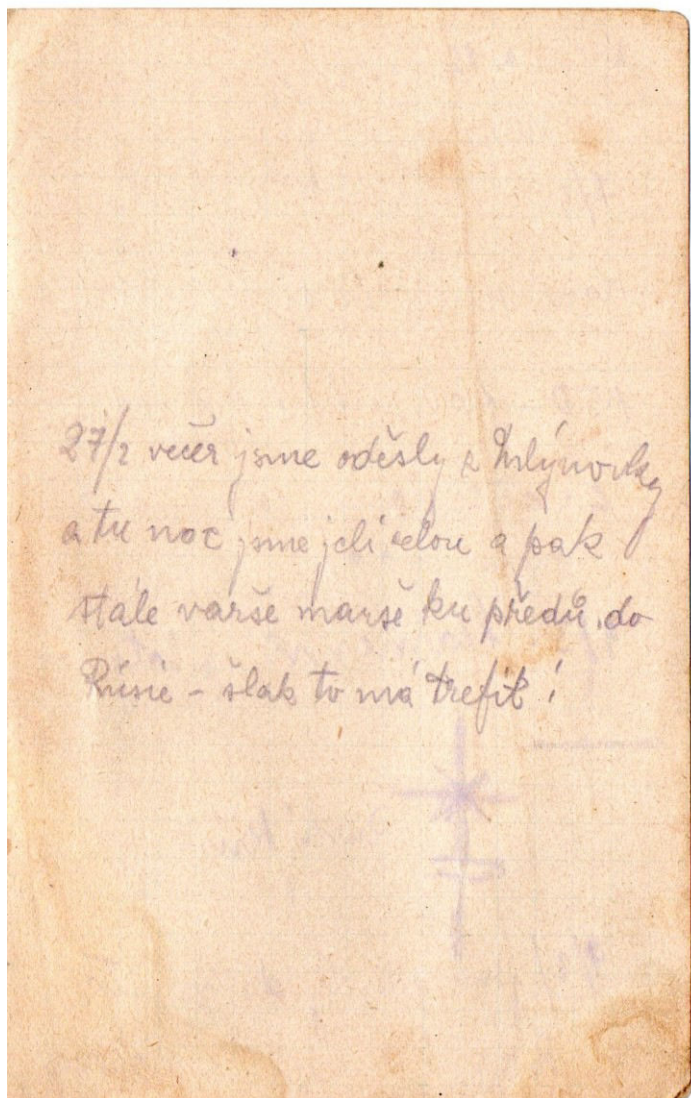 27/2 večer jsme oděsly z Mlýnovky
a tu noc jsme jeli celou a pak
stále varše marše ku předů do
Rusie - šlak to má trefit!